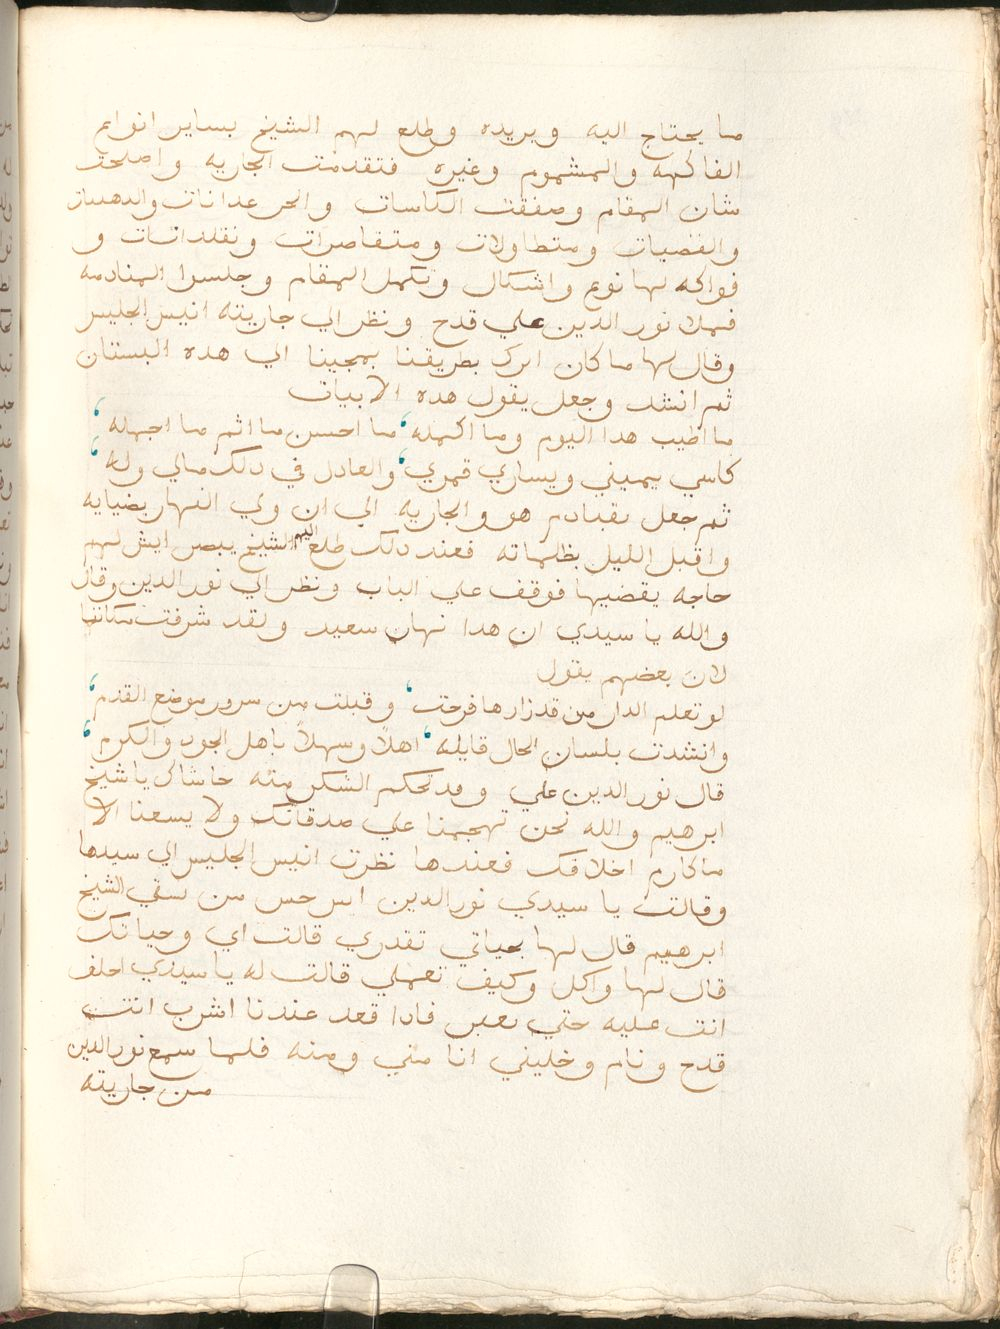 ما يحتاج اليه ويريده وطلع لهم الشيخ بساير انواع
الفاكهه والمشموم وغيره فتقدمت الجاريه واصلحت
شان المقام وصفقت الكاسات والخرعدانات
والفضيات ومتطاولات ومتقاصرات ونقلدانات و
فواكه لها نوع واشكال وتكمل المقام وجلسوا المنادمه
فملا نور الدين علي قدح ونظر الي جاريته انيس الجليس
وقال لها ما كان ابرك بطريقنا بمجينا الي هده البستان
ثم انشد وجعل يقول هده الابيات
ما اطيب هدا اليوم وما اكمله ما احسن ما اتم ما اجمله
كاسي بيميني ويساري قمري والعادل في دلك مالي وله
ثم جعل يتنادم هو والجاريه الي ان ولي النهار بضيايه
واقبل الليل بظلماته فعند دلك طلع اليهم الشيخ يبصر ايش لهم
حاجه يقضيها فوقف علي الباب ونظر الي نور الدين وقال
والله يا سيدي ان هدا نهار سعيد ولقد شرفت مكاننا
لان بعضهم يقول
لو تعلم الدار من قد زارها فرحت وقبلت من سرور موضع القدم
وانشدت بلسان الحال قايله اهلاً وسهلاً باهل الجود والكرم
قال نور الدين علي وقد تحكم السكر منه حاشاك يا شيخ
ابرهيم والله نحن تهجمنا علي صدقاتك ولا يسعنا الا
مكارم اخلاقك فعندها نظرت انيس الجليس الي سيدها
وقالت يا سيدي نور الدين ايس حس من نسقي الشيخ
ابرهيم قال لها بحياتي تقدري قالت اي وحياتك
قال لها واكل وكيف تعملي قالت له يا سيدي احلف
انت عليه حتي يعبر فادا قعد عندنا اشرب انت
قدح ونام وخليني انا مني ومنه فلما سمع نور الدين
من جاريته